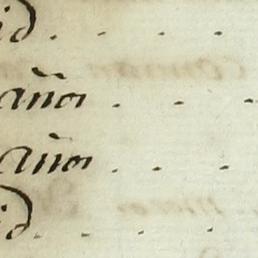 id . . . .
años . . .
años . . .
id . . .